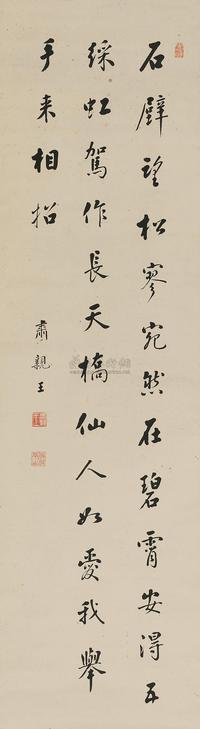 石壁望松寥宛然在碧霄安得五
綵虹駕作長天橋仙人如愛我舉
手来相招
肅親王